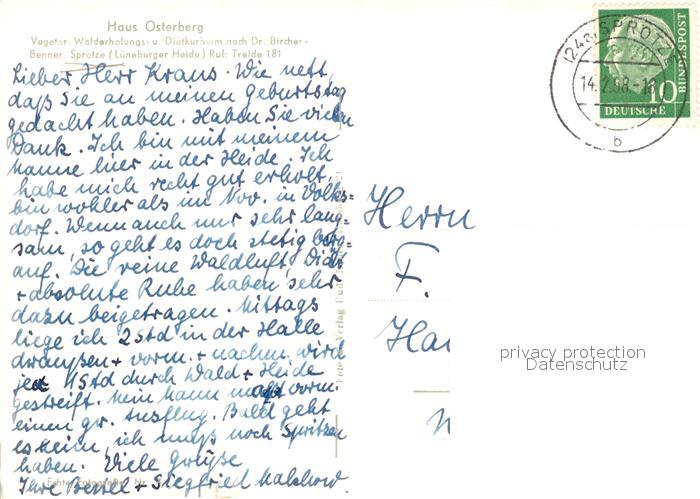 Haus Osterberg
Vegetar. Walderholungs- u. Diätkurheim nach Dr. Bircher-
Benner. Sprötze (Lüneburger Heide) Ruf: Trelde 181
Lieber Herr Kraus. Wie nett,
daß Sie an meinen Geburtstag
gedacht haben. Haben Sie vielen
Dank. Ich bin mit meinem
Manne hier in der Heide. Ich
habe mich recht gut erholt,
bin wohler als im Nov. in Volks=
dorf. Wenn auch nur sehr lang-
sam, so geht es doch stetig berg-
auf. Die reine Waldluft, Diät
+ absolute Ruhe haben sehr
dazu beigetragen. Mittags
liege ich 2 Std in der Halle
draußen + vorm. + nachm. wird
je 1 Std durch Wald + Heide
gestreift. Mein Mann macht vorm.
einen gr. Ausflug. Bald geht
es heim, ich muß noch Spritzen
haben. Viele Grüße
Ihre + Siegfried
Echte Fotografie Nr.
Herrn
F.
Ha
(24a) SPRÖTZE
14.2.58.-18
b
10
DEUTSCHE
BUNDESPOST
privacy protection
Datenschutz